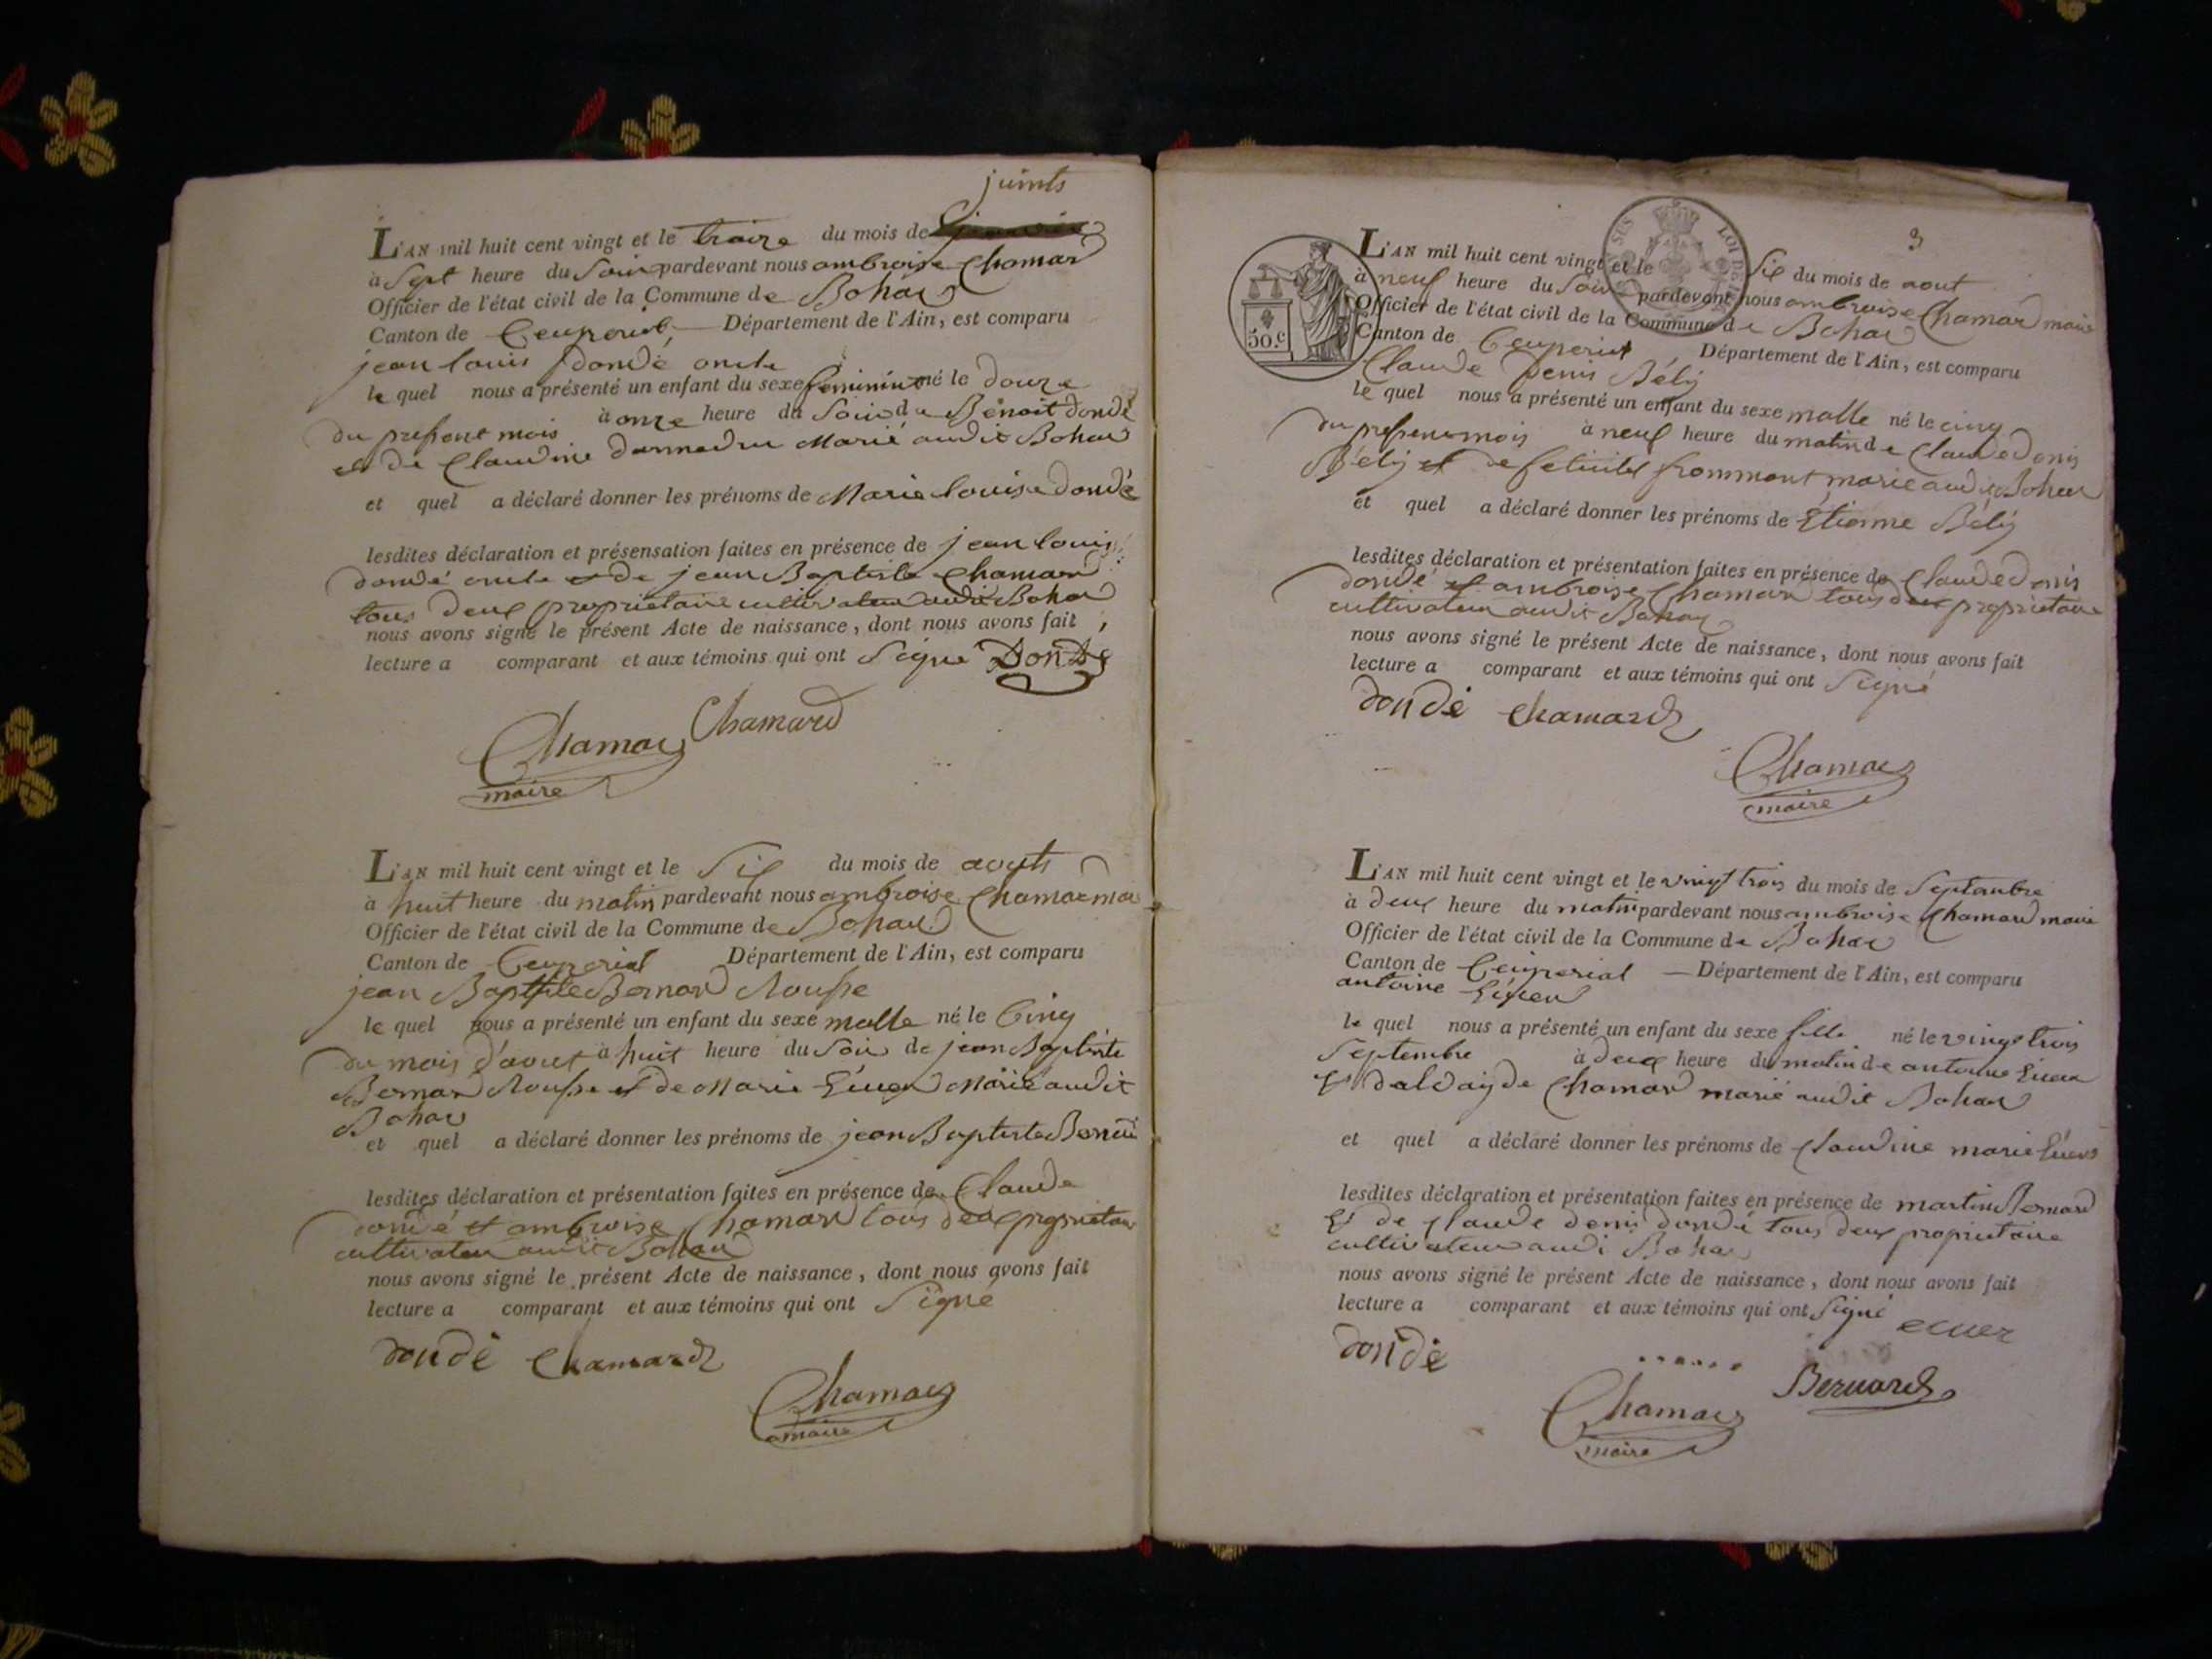 juints
L'AN mil huit cent vingt et le traize du mois de
à Sept heure du Soir pardevant nous ambroise Chamard
Officier de l'état civil de la Commune de Bohas
Canton de Ceyzeriat Département de l'Ain, est comparu
jean louis dondé oncle
le quel nous a présenté un enfant du sexe feminin né le douze
du present mois à onze heure du Soir de Benoit dondé
et de Claudine Marié audit Bohas
et quel a déclaré donner les prénoms de Marie louise dondé
lesdites déclaration et présensation faites en présence de jean louis
dondé oncle et de jean Baptiste Chamard
tous deux propriétaire cultivateur audit Bohas
nous avons signé le présent Acte de naissance, dont nous avons fait
lecture a comparant et aux témoins qui ont Signé Dondé
Chamard
Chamard
maire
L'AN mil huit cent vingt et le Six du mois de aouts
à huit heure du matin pardevant nous ambroise Chamar mai
Officier de l'état civil de la Commune de Bohas
Canton de Ceyzeriat Département de l'Ain, est comparu
jean Baptiste Bernard Rousse
le quel nous a présenté un enfant du sexe malle né le Cinq
du mois d'aout à huit heure du Soir de jean Baptiste
Bernard Rousse et de Marie Marié audit
Bohas
et quel a déclaré donner les prénoms de jean Baptiste Bernard
lesdites déclaration et présentation faites en présence de Claude
dondé et ambroise Chamard tous deux propriétair
cultivateur audit Bohas
nous avons signé le présent Acte de naissance, dont nous avons fait
lecture a comparant et aux témoins qui ont Signé
dondé Chamard
Chamard
maire
3
50.c
L'AN mil huit cent vingt et le Six du mois de aout
à neuf heure du Soir pardevant nous ambroise Chamard maire
Officier de l'état civil de la Commune de Bohas
Canton de Ceyzeriat Département de l'Ain, est comparu
Claude Denis Bély
le quel nous a présenté un enfant du sexe malle né le cinq
du present mois à neuf heure du matin de Claude Denis
Bély et de frommont marié audit Bohas
et quel a déclaré donner les prénoms de Etienne Bély
lesdites déclaration et présentation faites en présence de Claude Denis
dondé et ambroise Chamar tous deux propriétaire
cultivateur audit Bohas
nous avons signé le présent Acte de naissance, dont nous avons fait
lecture a comparant et aux témoins qui ont Signé
dondé Chamard
Chamard
maire
L'AN mil huit cent vingt et le vingt trois du mois de Septanbre
à deux heure du matin pardevant nous ambroise Chamard maire
Officier de l'état civil de la Commune de Bohas
Canton de Ceyzeriat Département de l'Ain, est comparu
antoine
le quel nous a présenté un enfant du sexe fille né le vingt trois
Septembre à deux heure du matin de antoine
Chamar marié audit Bohas
et quel a déclaré donner les prénoms de Claudine marie
lesdites déclaration et présentation faites en présence de martin Bernard
Et de Claude denis dondé tous deux propriétaire
cultivateur audi Bohas
nous avons signé le présent Acte de naissance, dont nous avons fait
lecture a comparant et aux témoins qui ont Signé
dondé
Bernard
Chamard
maire